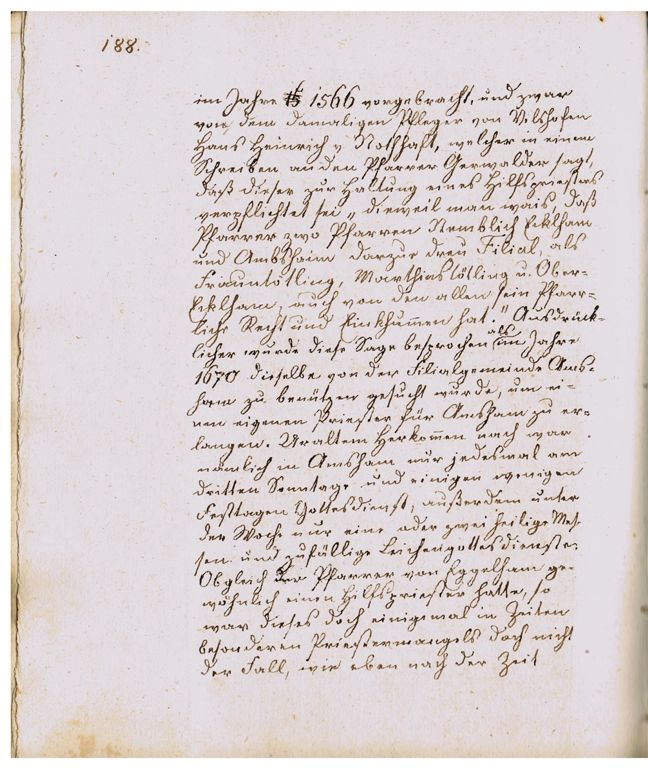 188.
im Jahre 1566 vorgebracht, und zwar
von dem damaligen Pfleger von Vilshofen
Hans Heinrich v. Nothhaft, welcher in einem
Schreiben an den Pfarrer Gerwalder sagt,
daß dieser zur Haltung eines Hilfspriesters
verpflichtet sei „dieweil man wais, daß
Pfarrer zwo Pfarren Nemblich Ecklham
und Ambshaim darzue dreu Filial, als
Frauntötling, Marthinstötling u. Ober-
Ecklham, auch von den allen sein Pfarr-
lich Recht und Einkhummen hat." Ausdrück-
licher wurde diese Sage besprochen als im Jahre
1670 dieselbe von der Filialgemeinde Ams-
ham zu benützen gesucht wurde, um ei-
nen eigenen Priester für Amsham zu er-
langen. Uraltem Herkommen nach war
nämlich in Amsham nur jedesmal am
dritten Sonntage und einigen wenigen
Festtagen Gottesdienst, außerdem unter
der Woche nur eine oder zwei heilige Mes-
sen und zufällige Leichengottesdienste.
Obgleich der Pfarrer von Eggelham ge-
wöhnlich einen Hilfspriester hatte, so
war dieses doch einigemal in Zeiten
besonderen Priestermangels doch nicht
der Fall, wie eben nach der Zeit